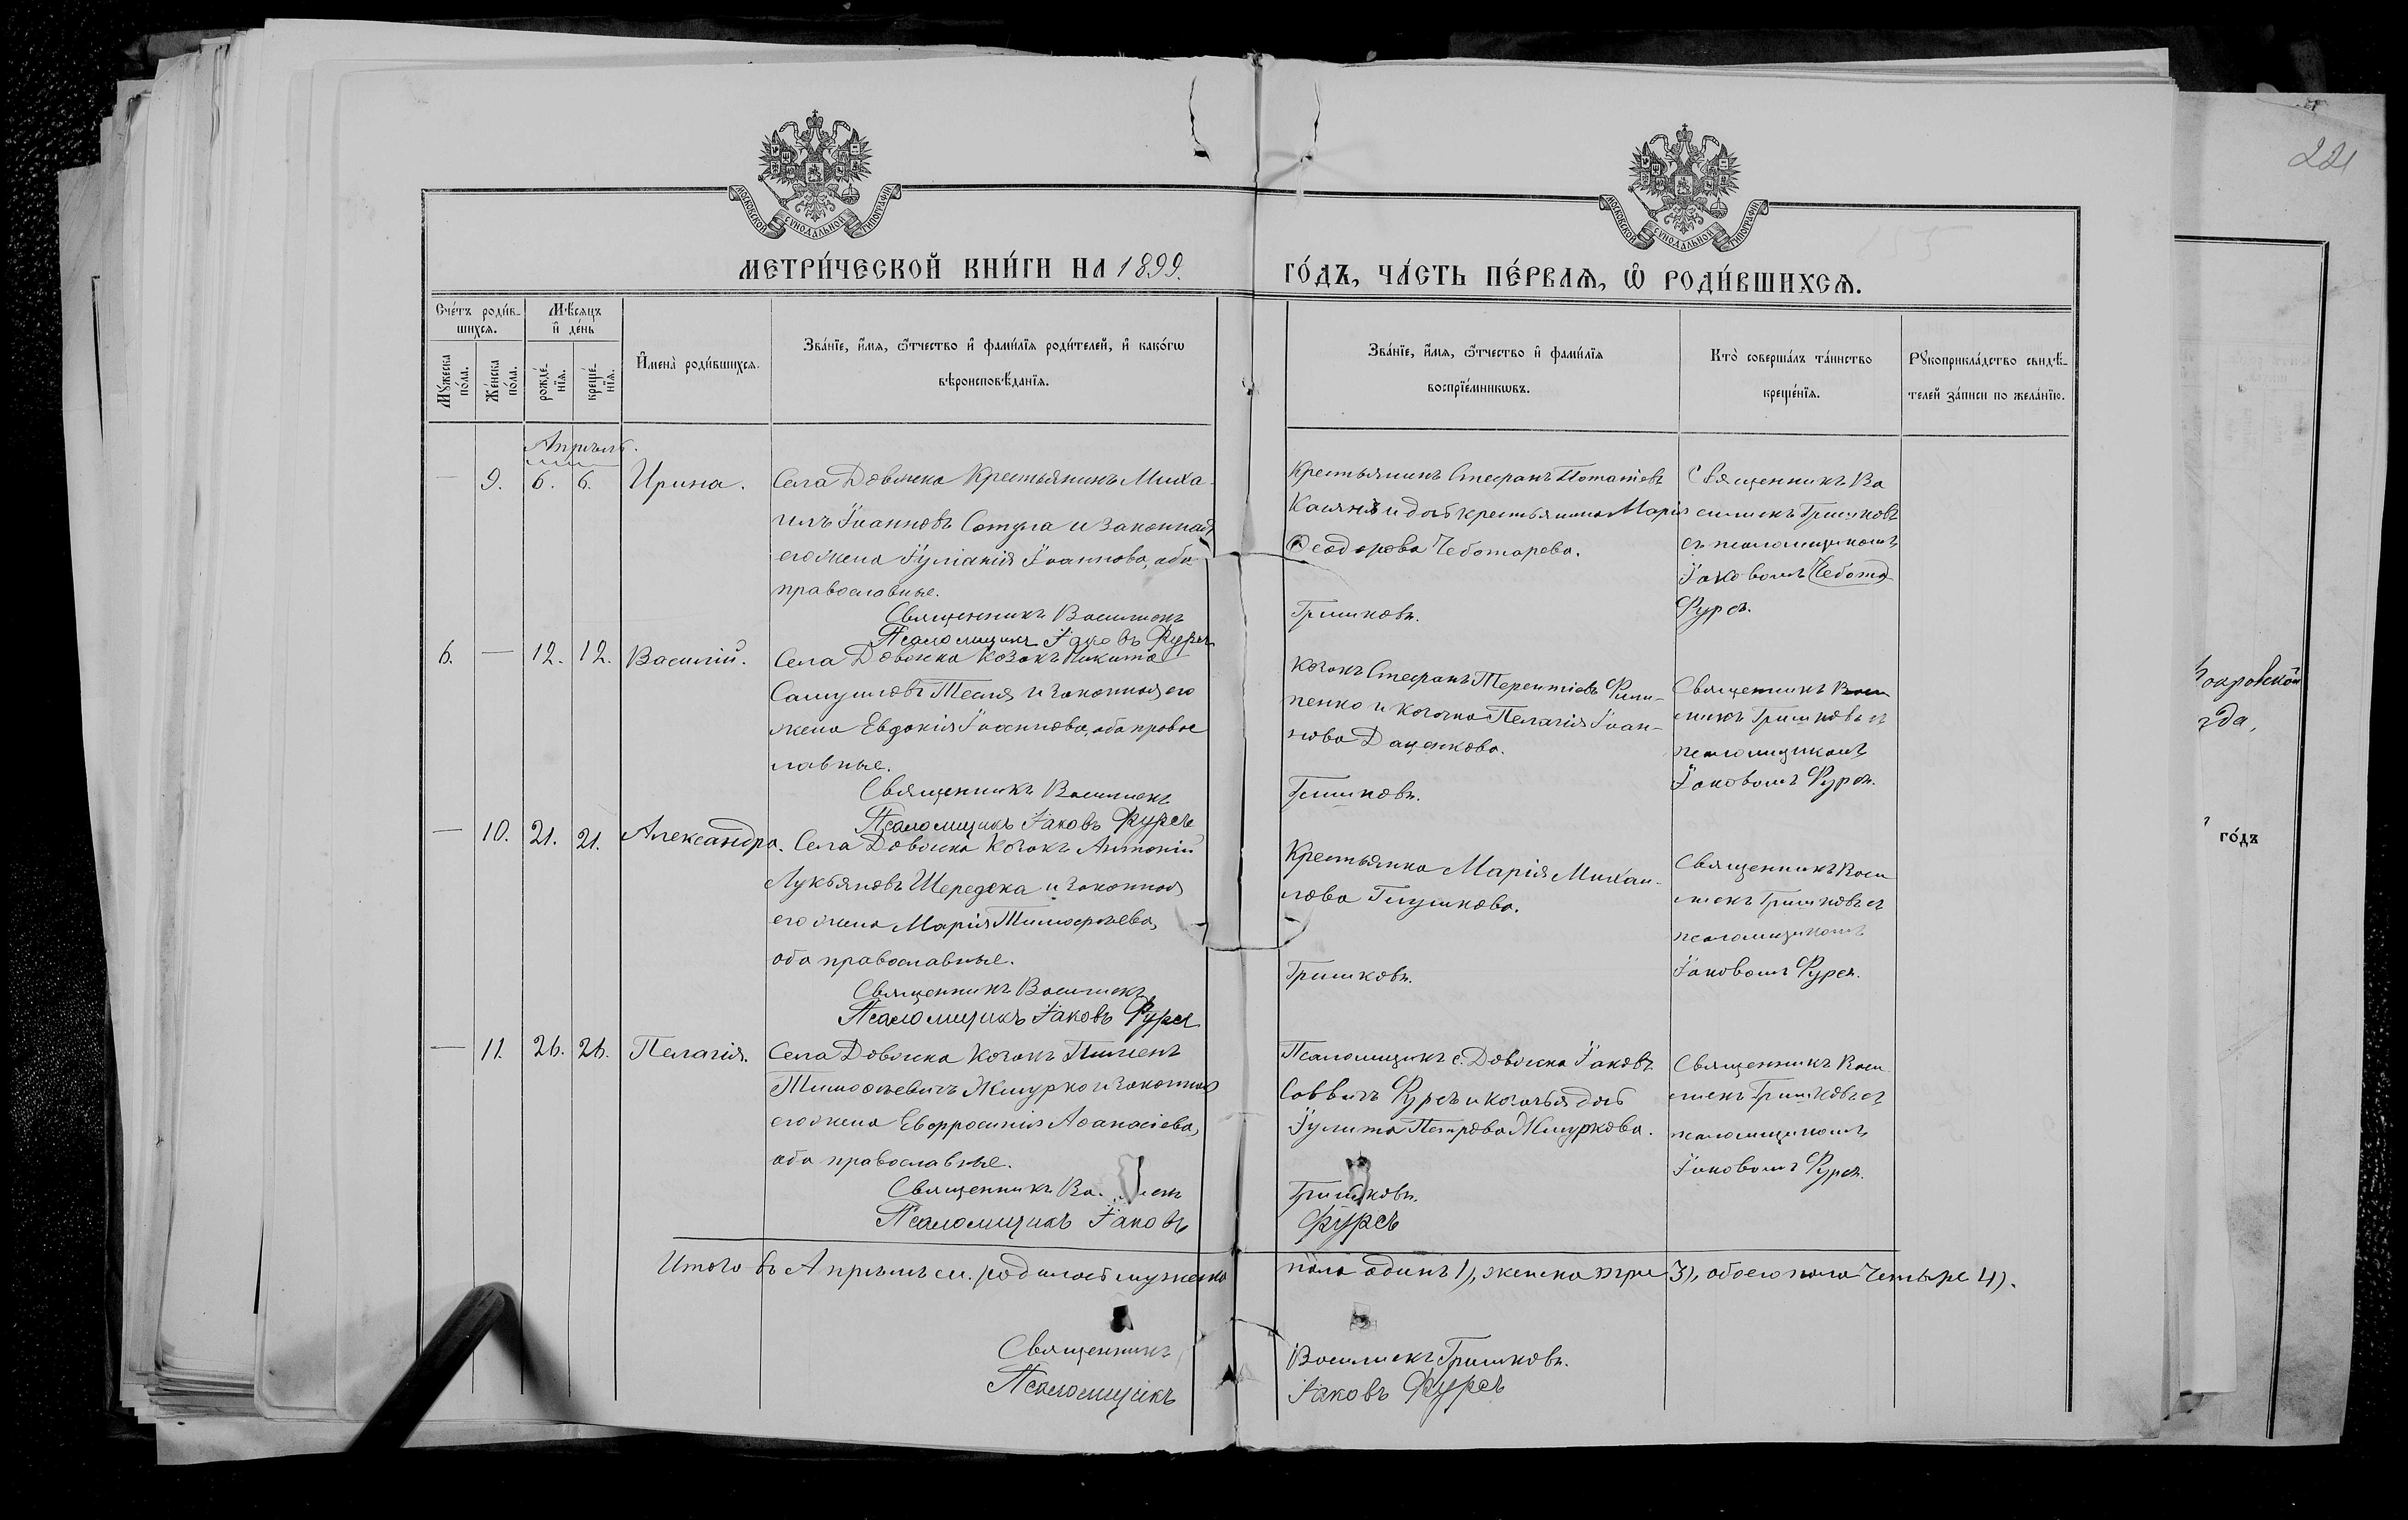 221
МОСКОВСКОЙ СѴНОДАЛЬНОЙ ТИПОГРАФІИ
МОСКОВСКОЙ СѴНОДАЛЬНОЙ ТИПОГРАФІИ
МЕТРИ́ЧЕСКОЙ КНИ́ГИ НА 1899.
ГО́ДЪ, ЧА́СТЬ ПЕ́РВАЯ, Ѡ РОДИ́ВШИХСЯ.
Сче́тъ роди́в-
шихся.
Мѣ́сяцъ
и҆ де́нь
Мꙋ́жеска
по́ла.
Же́нска
по́ла.
рожде́-
нїя.
креще́-
нїя.
И҆мена̀ роди́вшихся.
Зва́нїе, и҆́мя, ѻ҆́тчество и҆ фами́лїя роди́телей, и҆ како́гѡ
вѣроисповѣ́данїя.
Зва́нїе, и҆́мя, ѻ҆́тчество и҆ фами́лїя
воспрїе́мникѡвъ.
Кто̀ соверша́лъ та́инство
креще́нїя.
Рꙋкоприкла́дство свидѣ́-
телей за́писи по жела́нїю.
Апрѣль.
— 9. 6. 6. Ирина.
Села Довжика Крестьянинъ Миха-
илъ Іоанновъ Сотула и законная
его жена Іуліанія Іоаннова, оба
православные.
Священникъ Василискъ
Псаломщикъ Іаковъ Фурсъ
Крестьянинъ Стефанъ Потапіевъ
Касянъ и дочь крестьянина Марія
Ѳеодорова Чеботарева.
Гришковъ.
Священникъ Ва
силискъ Гришковъ
съ псаломщикомъ
Іаковомъ (Чебота)
Фурсъ.
6. — 12. 12. Василій.
Села Довжика Козакъ Никита
Самуиловъ Тесля и законная его
жена Евдокія Іоаннова, оба правос
лавные.
Священникъ Василискъ
Псаломщикъ Іаковъ Фурсъ
Козакъ Стефанъ Терентіевъ Фили-
пенко и козачка Пелагія Іоан-
нова Даценкова.
Гришковъ.
Священникъ Васи
лискъ Гришковъ съ
псаломщикомъ
Іаковомъ Фурсъ.
— 10. 21. 21. Александра.
Села Довжика Козакъ Антоній
Лукьяновъ Шередека и законная
его жена Марія Тимофѣева,
оба православные.
Священникъ Василискъ
Псаломщикъ Іаковъ Фурсъ
Крестьянка Марія Михаи-
лова Глушкова.
Гришковъ.
Священникъ Васи
лискъ Гришковъ съ
псаломщикомъ
Іаковомъ Фурсъ.
— 11. 26. 26. Пелагія.
Села Довжика Козакъ Пименъ
Тимоѳеевичъ Жмурко и законная
его жена Евфросинія Аѳанасіева,
оба православные.
Священникъ Ва лискъ
Псаломщикъ Іаковъ
Псаломщикъ с. Довжика Іаковъ
Саввичъ Фурсъ и козачья дочь
Іулита Петрова Жмуркова.
Гришковъ.
Фурсъ
Священникъ Васи
лискъ Гришковъ съ
псаломщикомъ
Іаковомъ Фурсъ.
Итого въ Апрѣлѣ м. родилось мужеска пола одинъ 1), женска три 3), обоего пола четыре 4).
Священникъ Василискъ Гришковъ.
Псаломщикъ Іаковъ Фурсъ
Покровской
зда,
го́дъ